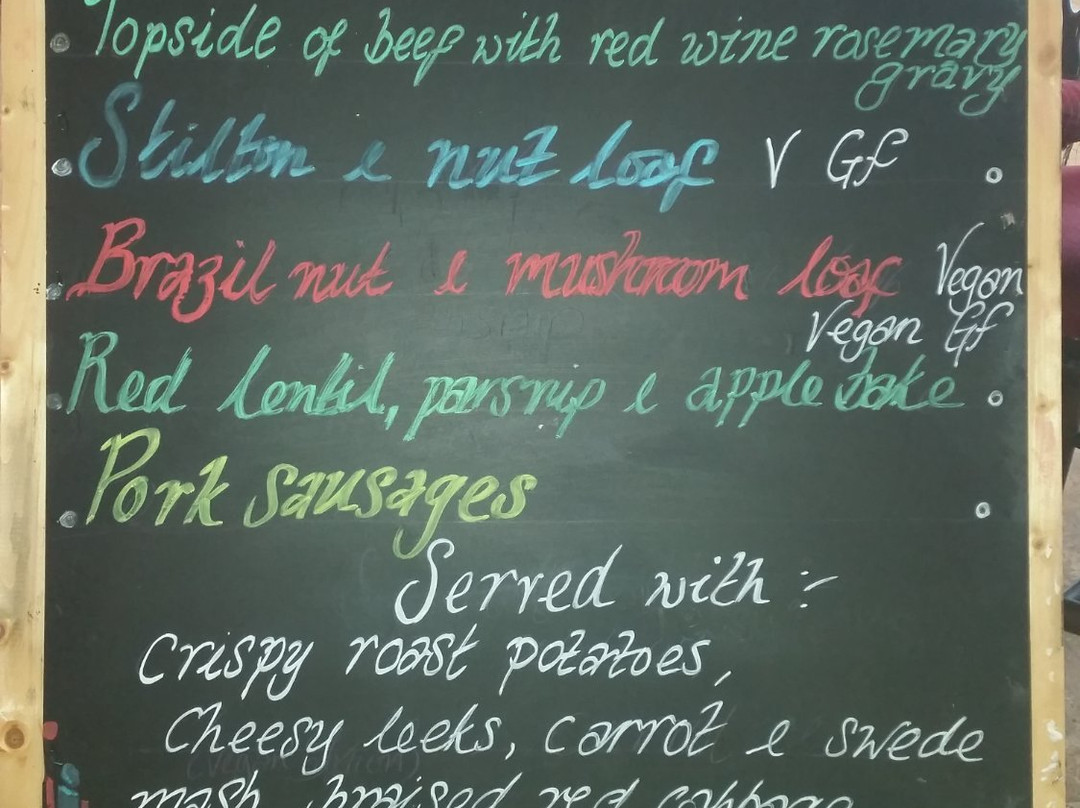 Topside of beef with red wine rosemary
gravy
Stilton & nut loaf V Gf
Brazil nut & mushroom loaf Vegan
Vegan Gf
Red lentil, parsnip & apple bake
Pork sausages
Served with :-
Crispy roast potatoes,
Cheesy leeks, carrot & swede
mash, braised red cabbage